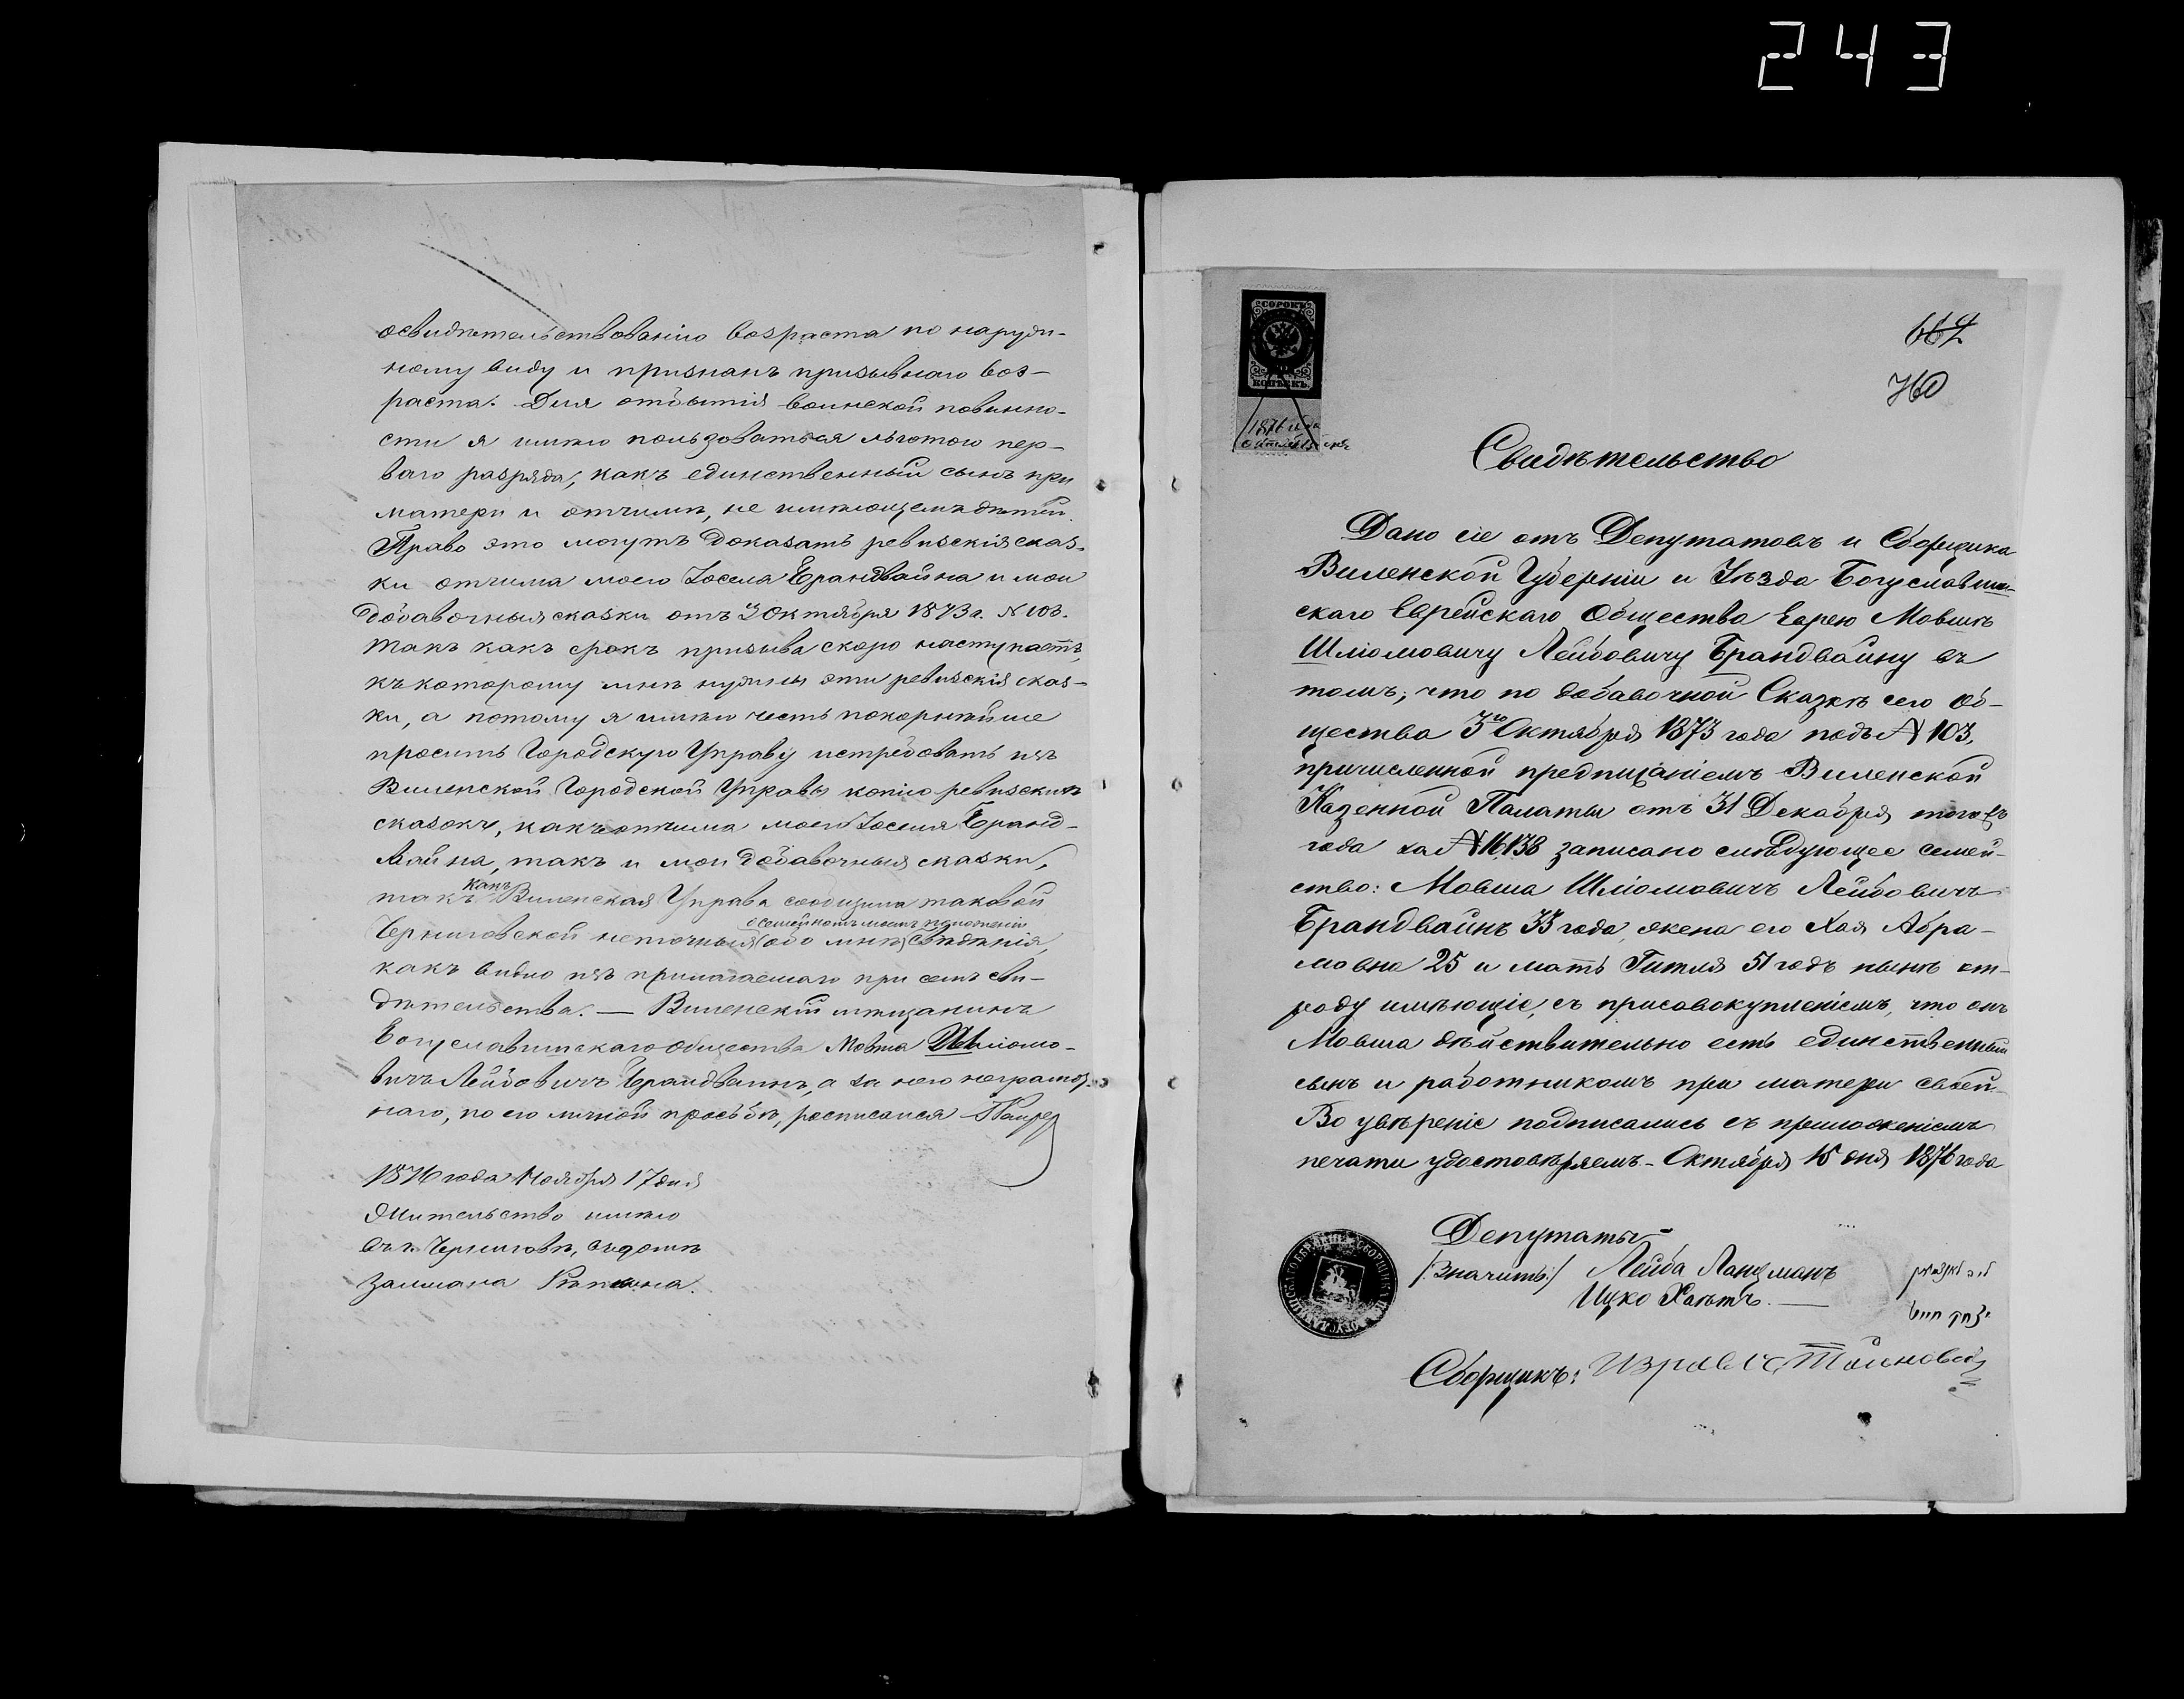 243
освидѣтельствованію возраста по наруж-
ному виду и признанъ призывнаго воз-
раста. Для отбытія воинской повинно-
сти я имѣю пользоваться льготою пер-
ваго разряда, какъ единственный сынъ при
матери и отчимѣ, не имѣющемъ дѣтей.
Право это могутъ доказать ревизскія сказ-
ки отчима моего Іоселя Брандвайна и мои
добавочныя сказки отъ 3 Октября 1873 г. № 103.
Такъ какъ срокъ призыва скоро наступаетъ,
къ которому мнѣ нужны эти ревизскія сказ-
ки, а потому я имѣю честь покорнѣйше
просить Городскую Управу истребовать изъ
Виленской Городской Управы копію ревизскихъ
сказокъ, какъ отчима моего Іоселя Бранд-
вайна, такъ и мои добавочныя сказки,
такъ какъ Виленская Управа сообщила таковой
о семейномъ моемъ положеніи
Черниговской неточныя (обо мнѣ) свѣдѣнія,
какъ видно изъ прилагаемаго при семъ сви-
дѣтельства. — Виленскій мѣщанинъ
Богуславишскаго Общества Мовша Шліомо-
вичъ Лейбовичъ Брандвайнъ, а за него неграмот-
наго, по его личной просьбѣ, росписался
1876 года Ноября 17 дня
Жительство имѣю
въ г. Черниговѣ, въ домѣ
Залмана
СОРОКЪ
КОПѢЕКЪ
1876 года
669
70
Свидѣтельство
Дано сіе отъ Депутатовъ и Сборщика
Виленской Губерніи и Уѣзда Богуславиш-
скаго Еврейскаго Общества Еврею Мовшѣ
Шліомовичу Лейбовичу Брандвайну въ
томъ, что по добавочной Сказкѣ сего Об-
щества 3го Октября 1873 года подъ № 103,
причисленной предписаніемъ Виленской
Казенной Палаты отъ 31 Декабря тогожъ
года за № 16,138 записано слѣдующее семей-
ство: Мовша Шліомовичъ Лейбовичъ
Брандвайнъ 33 года, жена его Хая Абра-
мовна 25 и мать Гитля 51 годъ нынѣ от-
роду имѣющіе, съ присовокупленіемъ, что онъ
Мовша дѣйствительно есть единственный
сынъ и работникомъ при матери своей.
Во увѣреніе подписались съ приложеніемъ
печати удостовѣряемъ. - Октября 15 дня 1876 года
Депутаты
/:Значитъ:/ Лейба Ланцманъ
Ицко Хаютъ. —
יצחק חיוט
Сборщикъ: